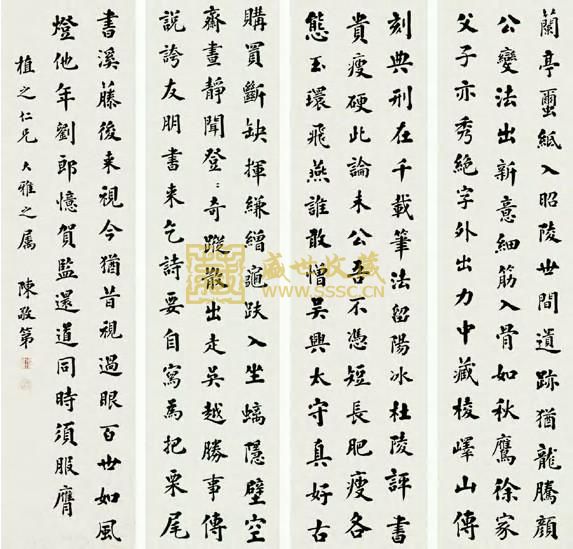 蘭亭蠒紙入昭陵世間遺跡猶龍騰顏
公變法出新意細筋入骨如秋鷹徐家
父子亦秀絕字外出力中藏棱嶧山傳
刻典刑在千載筆法留陽冰杜陵評書
貴瘦硬此論未公吾不憑短長肥瘦各
態玉環飛燕誰敢憎吳興太守真好古
購買斷缺揮縑繒龜趺入坐螭隱壁空
齋晝靜聞登〻奇蹤散出走吳越勝事傳
說誇友朋書来乞詩要自寫為把栗尾
書溪藤後来視今猶昔視過眼百世如風
燈他年劉郎憶賀監還道同時須服膺
植之仁兄大雅之属 陳敬第
盛世收藏
WWW.SSSC.CN